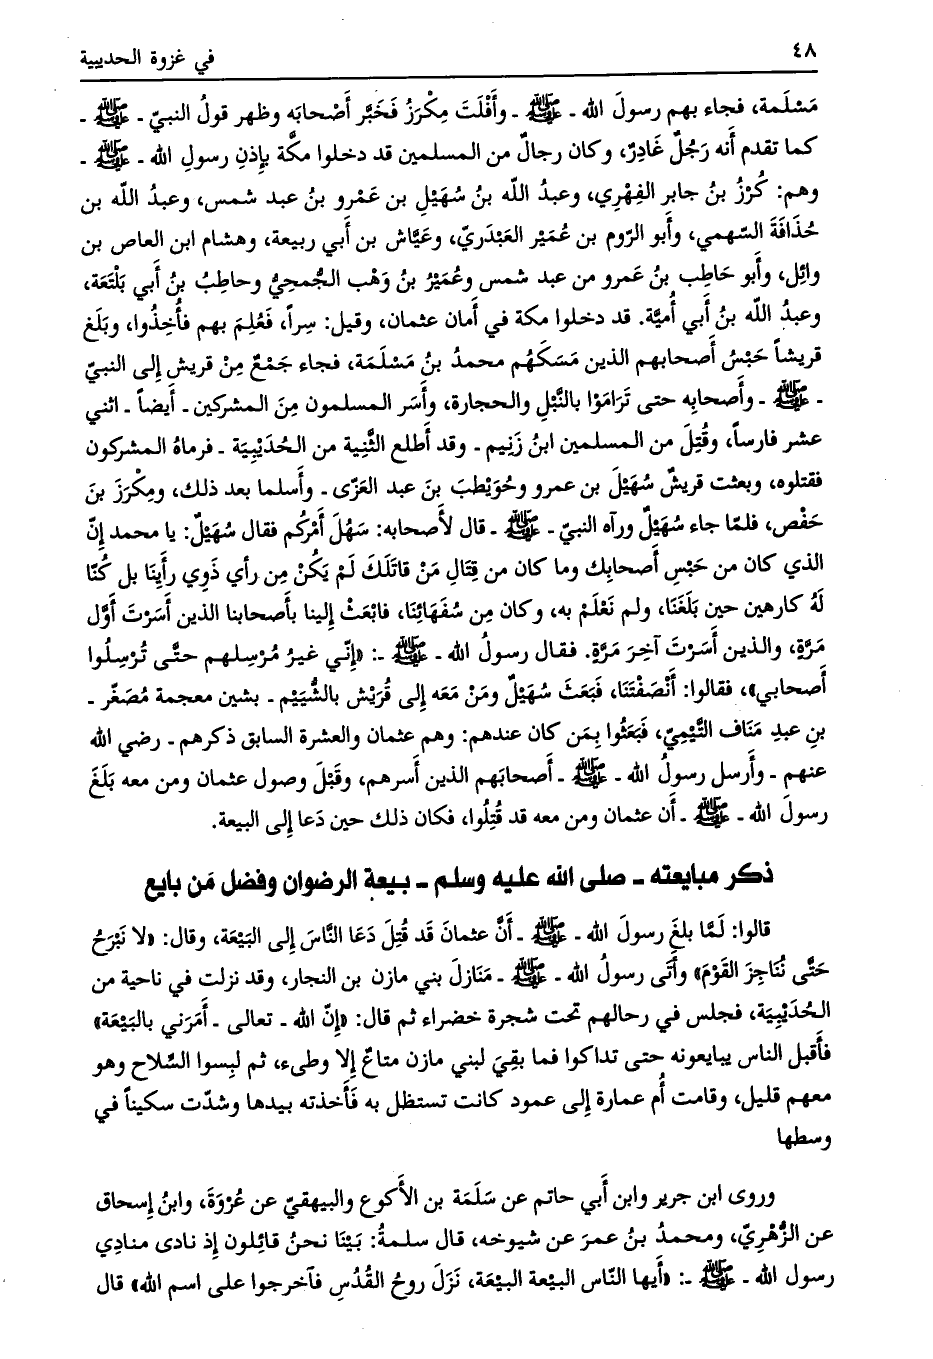 ٤٨ في غزوة الحديبية
مَسْلَمة، فجاء بهم رسولَ الله ـ ﷺ ـ وأَفْلَتَ مِكْرَزُ فَخَبَّر أَصْحابَه وظهر قولُ النبيّ ـ ﷺ ـ
كما تقدم أنه رَجُلٌ غَادِرٌ، وكان رجالٌ من المسلمين قد دخلوا مكة بإِذنِ رسولِ الله ـ ﷺ ـ
وهم: كُرْزُ بنُ جابر الفِهْري، وعبدُ الله بنُ سُهَيْلِ بن عَمْرو بنُ عبد شمس، وعبدُ الله بن
حُذَافَةَ السّهمي، وأبو الرّوم بن عُمَيْر العَبْدَريّ، وعَيَّاش بن أَبي ربيعة، وهشام ابن العاص بن
وائِل، وأَبو حَاطِب بنُ عَمرو من عبد شمس وعُمَيْرُ بنُ وَهْب الجُمحِيُّ وحاطِبُ بنُ أَبي بَلْتَعَة،
وعبدُ الله بنُ أَبي أُميَّة. قد دخلوا مكة في أَمان عثمان، وقيل: سِراً، فَعُلِمَ بهم فأُخِذُوا، وبَلَغ
قريشاً حَبْسُ أَصحابهم الذين مَسَكَهُم محمدُ بنُ مَسْلَمَة، فجاء جَمْعٌ مِنْ قريش إِلى النبيّ
ـ ﷺ ـ وأَصحابِه حتى تَرَامَوْا بالنَّبْل والحجارة، وأَسَر المسلمون مِنَ المشركين ـ أَيضاً ـ اثني
عشر فارساً، وقُتِلَ من المسلمين ابنُ زَنِيم ـ وقد أَطلع الثَّنِية من الحُدَيْبِيَة ـ فرماهُ المشركون
فقتلوه، وبعثت قريشٌ سُهَيْلَ بن عمرو وحُوَيْطبَ بنَ عبد العَزّى ـ وأَسلما بعد ذلك، ومِكْرَزَ بنَ
حَفْص، فلمّا جاء سُهَيْلٌ ورآه النبيّ ـ ﷺ ـ قال لأَصحابه: سَهُلَ أَمْرُكم فقال سُهَيْلٌ: يا محمد إِنّ
الذي كان من حَبْسِ أَصحابِك وما كان من قِتَالِ مَنْ قاتَلَكَ لَمْ يَكُنْ مِن رأي ذَوِي رأَيِنَا بل كُنّا
لَهُ كارهين حين بَلَغَنَا، ولم نَعْلَمْ به، وكان مِن سُفَهَائِنَا، فابْعَثْ إِلينا بأَصحابنا الذين أَسَرْتَ أَوَّل
مَرَّةٍ، والذين أَسَرْتَ آخِرَ مَرَّةٍ. فقال رسولُ الله ـ ﷺ ـ: «إِنّي غيرُ مُرْسِلهم حتَّى تُرْسِلُوا
أَصحابي»، فقالوا: أَنْصَفْتَنَا، فَبَعَثَ سُهَيْلٌ ومَنْ مَعَه إِلى قُرَيْش بالشُّيَيْم ـ بشين معجمة مُصَغّر ـ
بنِ عبدِ مَنَاف التَّيْمِيّ، فَبَعَثُوا بِمَن كان عندهم: وهم عثمان والعشرة السابق ذكرهم ـ رضي الله
عنهم ـ وأَرسل رسولُ الله ـ ﷺ ـ أَصحابَهم الذين أَسرهم، وقَبْلَ وصول عثمان ومن معه بَلَغَ
رسولَ الله ـ ﷺ ـ أن عثمان ومن معه قد قُتِلُوا، فكان ذلك حين دَعا إِلى البيعة.
ذكر مبايعته ـ صلى الله عليه وسلم ـ بيعة الرضوان وفضل مَن بايع
قالوا: لَمَّا بلغَ رسولَ الله ـ ﷺ ـ أَنَّ عثمانَ قَد قُتِلَ دَعَا النَّاسَ إِلى البَيْعَة، وقال: «لا نَبْرَحُ
حَتَّى نُنَاجِزَ القَوْمَ» وأَتَى رسولُ الله ـ ﷺ ـ مَنَازلَ بني مازن بن النجار، وقد نزلت في ناحية من
الحُدَيْبِيَة، فجلس في رحالهم تحت شجرة خضراء ثم قال: «إِنّ الله ـ تعالى ـ أَمَرَني بالبَيْعَة»
فأَقبل الناس يبايعونه حتى تداكوا فما بقِيَ لبني مازن متاعٌ إِلا وطىء، ثم لبِسوا السِّلاح وهو
معهم قليل، وقامت أُم عمارة إِلى عمود كانت تستظل به فَأَخذته بيدها وشدّت سكيناً في
وسطها
وروى ابن جرير وابن أَبي حاتم عن سَلَمَة بن الأَكوع والبيهقيّ عن عُرْوَةَ، وابنُ إِسحاق
عن الزُّهْرِيّ، ومحمدُ بنُ عمرَ عن شيوخه، قال سلمةُ: بَيْنَا نحنُ قائِلون إِذ نادى منادِي
رسول الله ـ ﷺ ـ: «أَيها النّاس البيْعة البيْعَة، نَزَلَ روحُ القُدُسِ فآخرجوا على اسم الله» قال